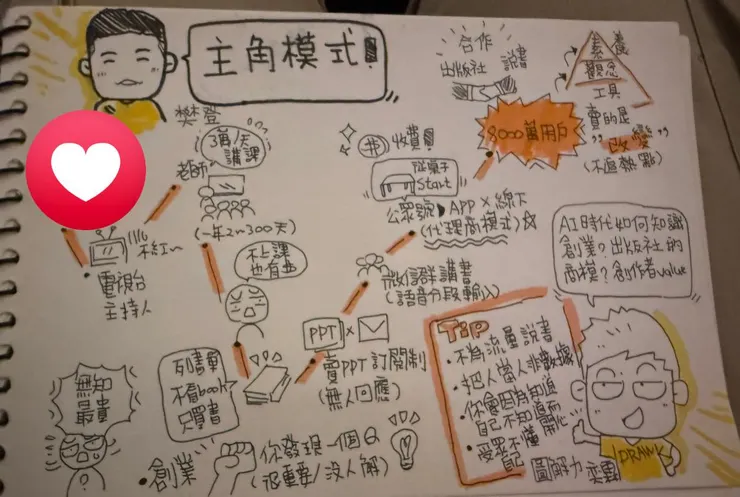 主角模式!
樊登
老師
3萬/天
講課
不紅~
電視台
主持人
(一年2~300天)
不上課
也有益
列書單
不看book
只買書
無知
最貴
創業
你發現一個Q
(很重要/沒人解)
PPT × 
賣PPT訂閱制
(無人回應)
微信群講書
(語音分段輸入)
公眾號 APP × 線下
(代理商模式)
收費!
從桌子
Start
8000萬用戶
合作
出版社 說書
素養
觀念
工具
賣的是
"改變"
(不追熱點)
AI時代如何知識
創業?出版社的
商模?創作者value
Tip
・不為流量說書
・把人當人非數據
・你會因為知道
自己不知道而開心
・受眾不懂
自己
DRAWK
圖解力 奕霖